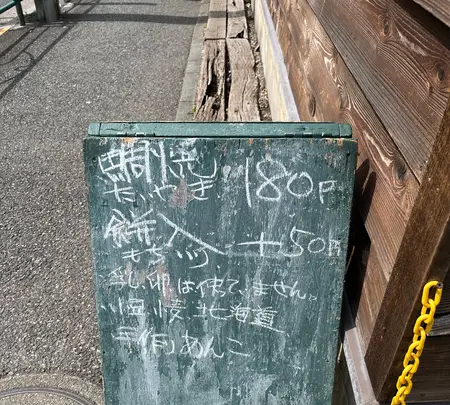 鯛焼 180円
たいやき
餅入 +50円
もち入り
乳卵は使てません。
北海道
あんこ